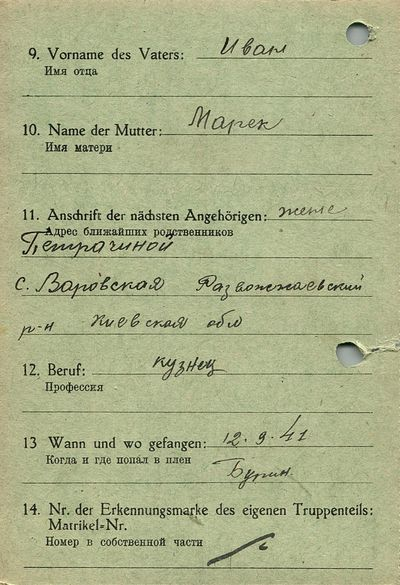 9. Vorname des Vaters: Иван
Имя отца
10. Name der Mutter: Марек
Имя матери
11. Anschrift der nächsten Angehörigen: жене
Адрес ближайших родственников
Петрачиной
с. Варовская Развожжаевский
р-н Киевская обл
12. Beruf: кузнец
Профессия
13 Wann und wo gefangen: 12.9.41
Когда и где попал в плен
14. Nr. der Erkennungsmarke des eigenen Truppenteils:
Matrikel=Nr.
Номер в собственной части